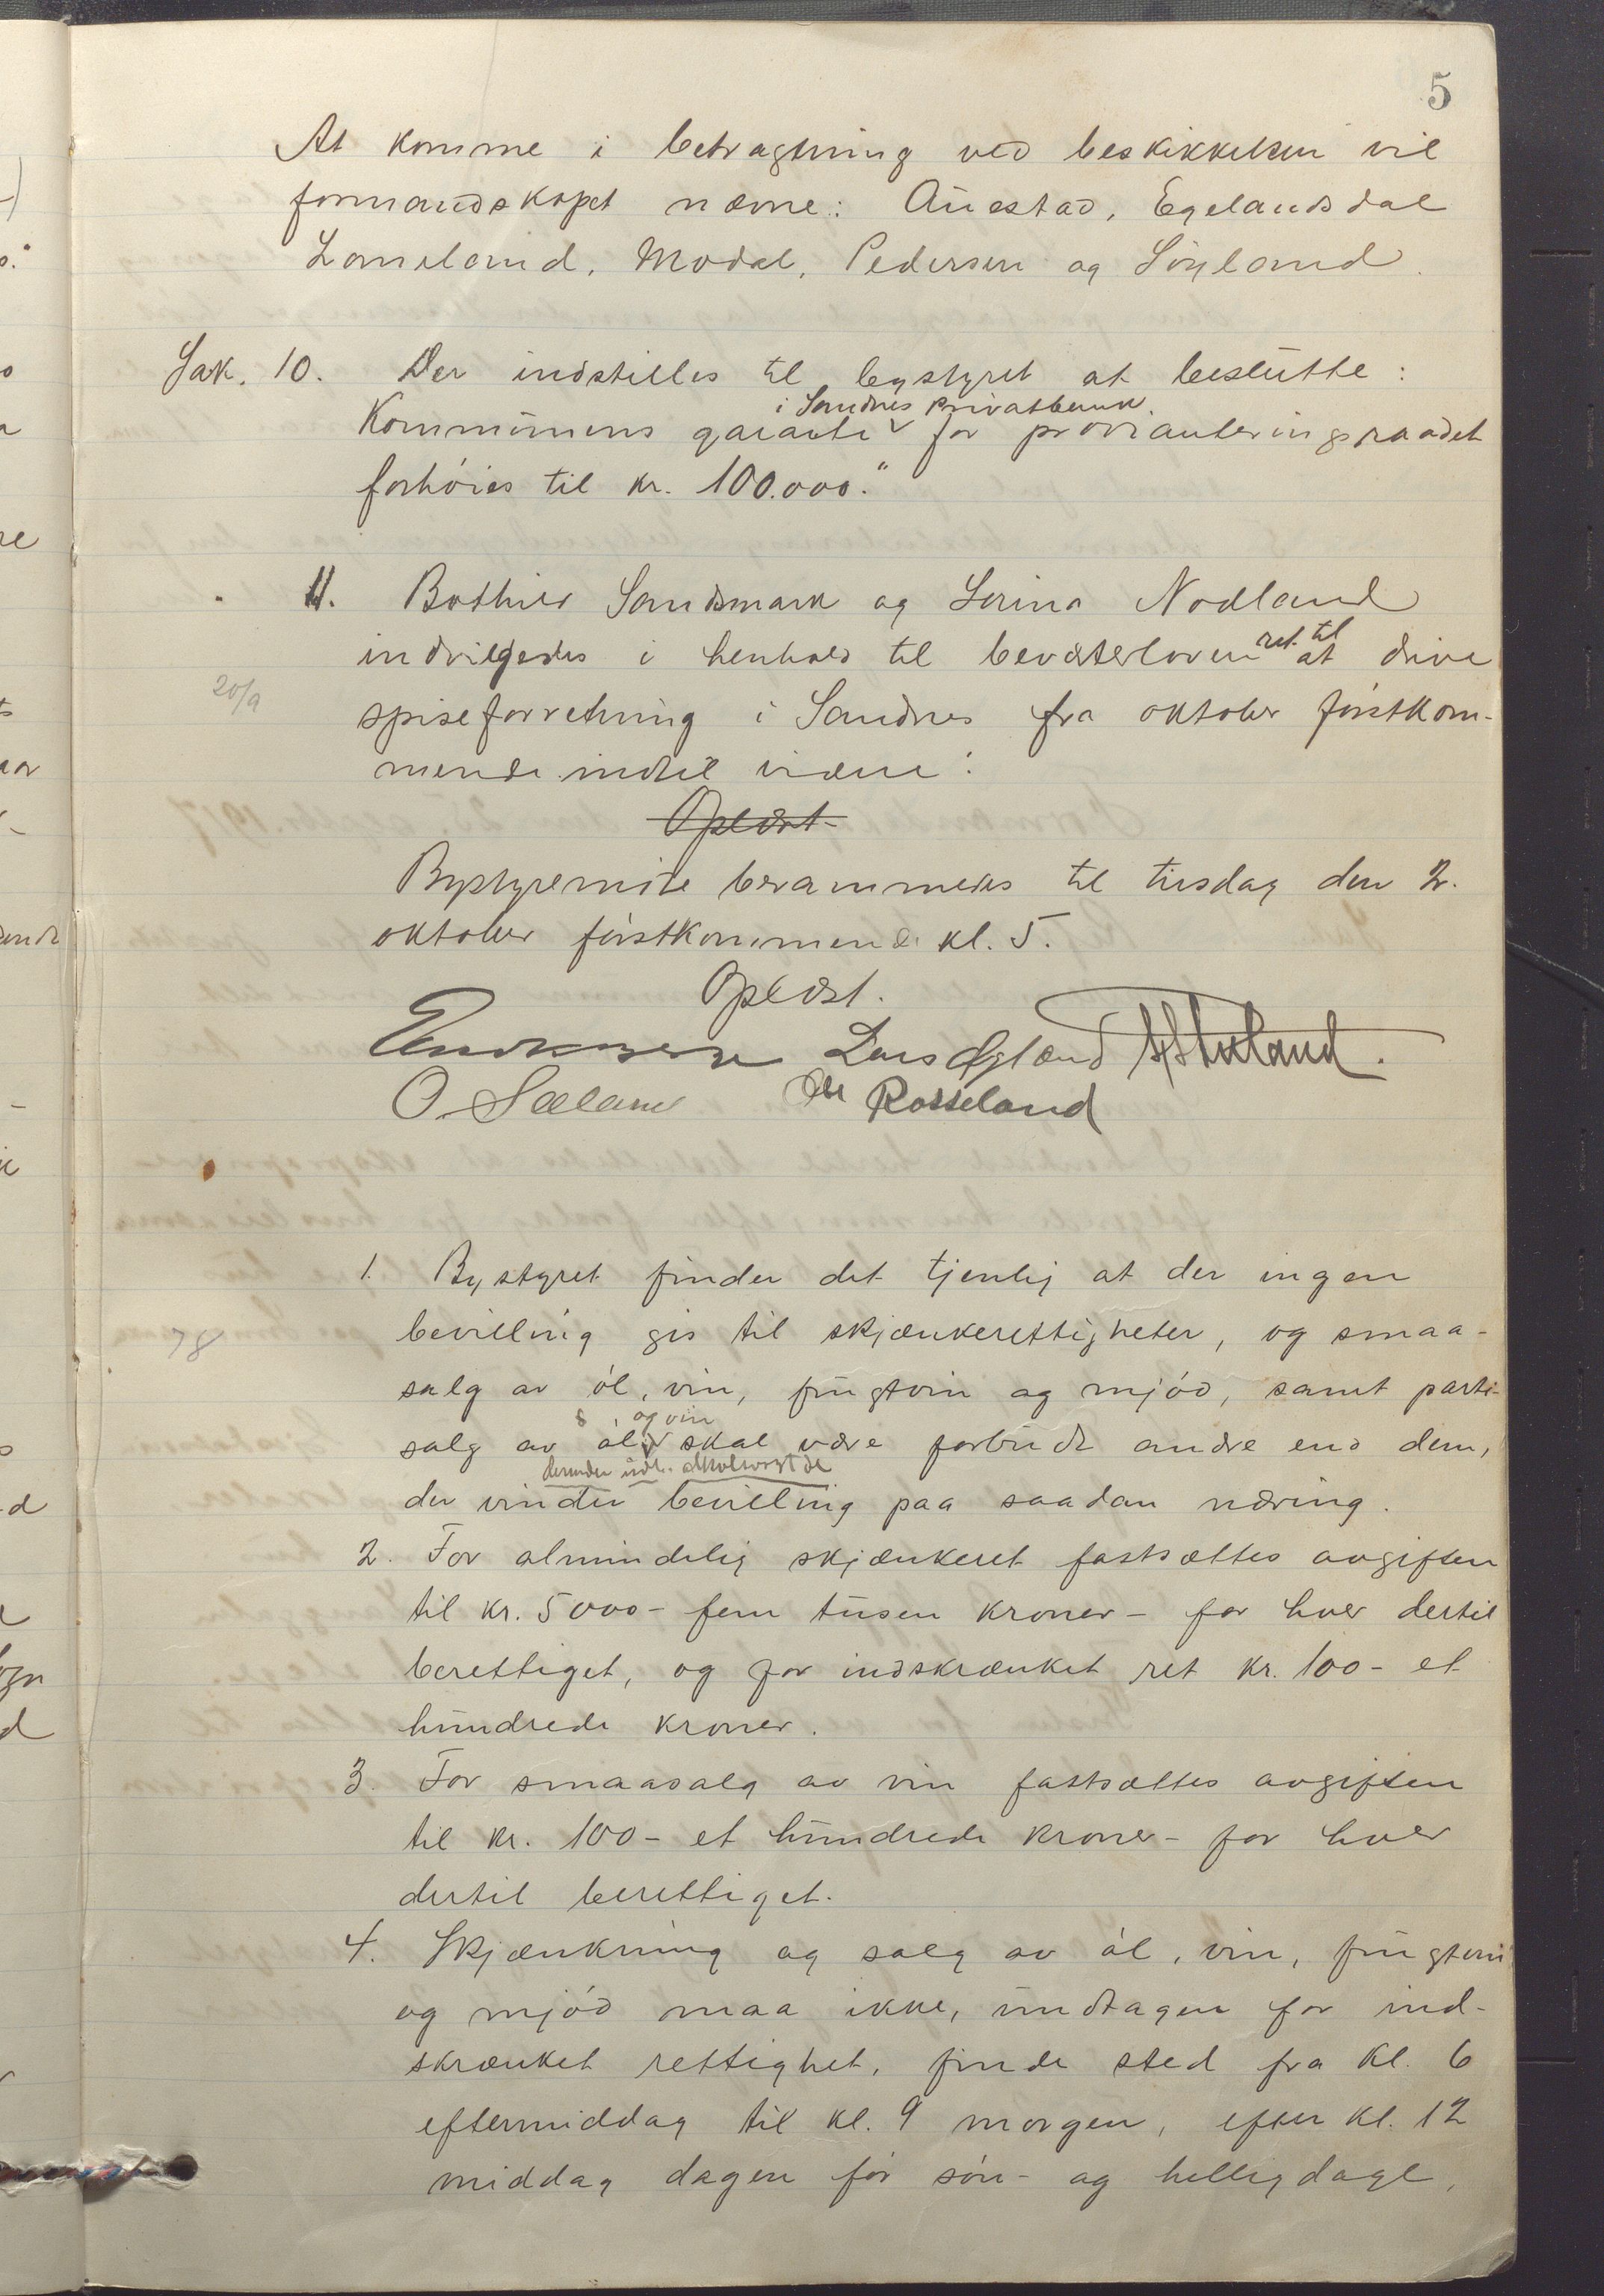 5
At komme i betragtning ved beskikkelsen vil
formandskapet nævne: Auestad, Egelandsdal
Lomeland, Modal, Pedersen og Söyland.
Sak. 10. Der indstilles til bystyret at beslutte:
i Sandnes Privatbank.
Kommunens garanti for provianteringsraadet
forhöies til kr. 100.000."
11. Bothild Sandsmark og Serina Nodland
indvilgedes i henhold til beværterloven ret til at drive
20/9
spiseforretning i Sandnes fra oktober förstkom-
mende indtil videre.
Oplæst
Bystyremöte berammedes til tirsdag den 2.
oktober förstkommende kl. 5.
Oplæst.
Lars Ogland
O. Sæland Rosseland
1. Bystyret finder det tjenlig at der ingen
78
bevilling gis til skjænkerettigheter, og smaa-
salg av öl, vin, frugtvin og mjöd, samt parti-
og vin
salg av öl skal være forbudt andre end dem,
derunder
der vinder bevilling paa saadan næring.
2. For almindelig skjænkeret fastsættes avgiften
til kr. 5000 - fem tusen kroner - for hver dertil
berettiget, og for indskrænket ret kr. 100 - et
hundrede kroner.
3. For smaasalg av vin fastsættes avgiften
til kr. 100 - et hundrede kroner - for hver
dertil berettiget.
4. Skjænkning og salg av öl, vin, frugtvin
og mjöd maa ikke, undtagen for ind-
skrænket rettighet, finde sted fra kl. 6
eftermiddag til kl. 9 morgen, efter kl. 12
middag dagen för sön- og helligdage,